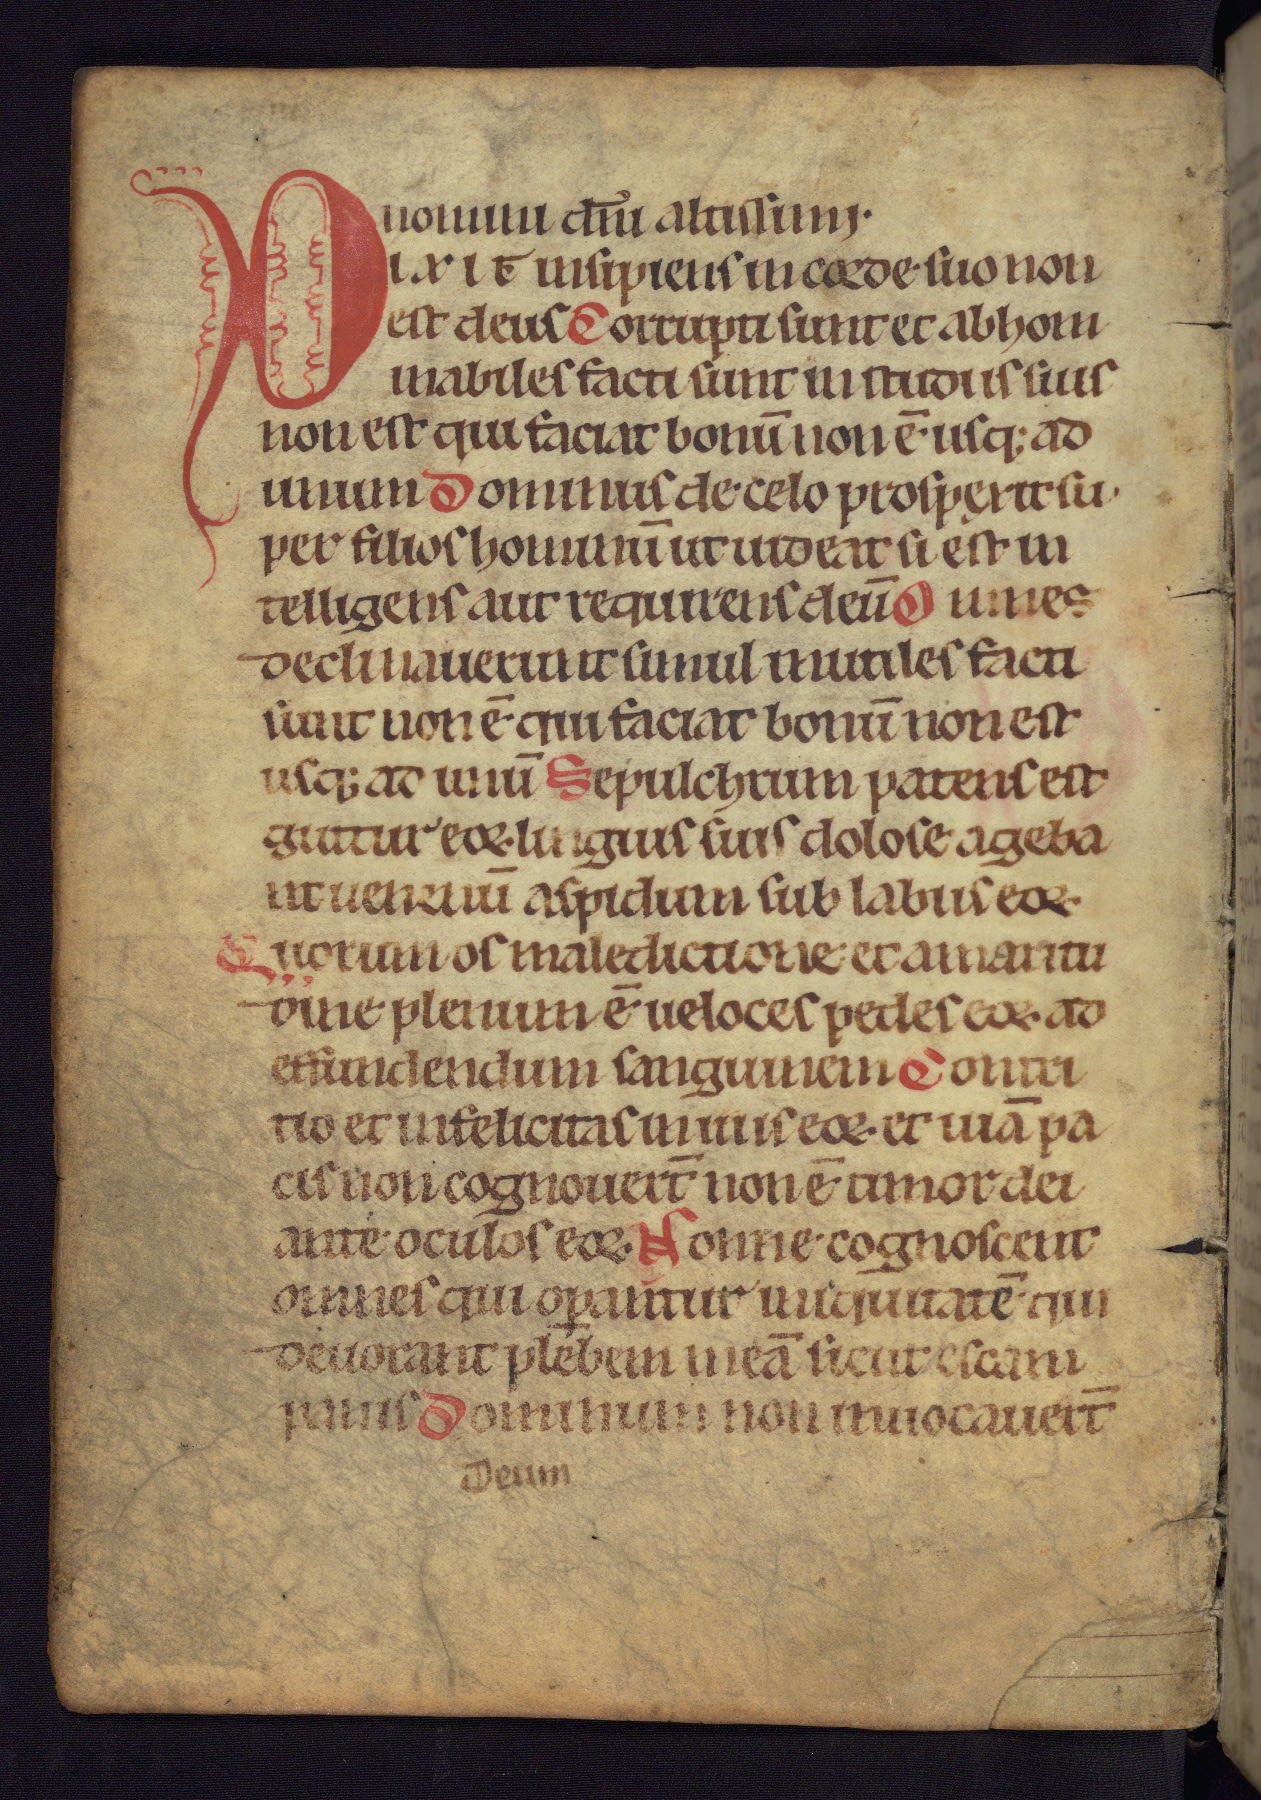 nomini dn̄i altissimi.
DIXIT insipiens in corde suo non
est deus Corrupti sunt et abhom
inabiles facti sunt in studiis suis
non est qui faciat bonū non ē usq; ad
unum Dominus de celo prosperit su
per filios hominū ut uideat si est in
telligens aut requirens deū Omnes
declinauerunt simul inutiles facti
sunt non ē qui faciat bonū non est
usq; ad unū Sepulchrum patens est
guttur eoꝝ linguis suis dolose ageba
nt uenenū aspidum sub labiis eoꝝ
Quorum os maledictione et amaritu
dine plenum ē ueloces pedes eoꝝ ad
effundendum sanguinem Contri
tio et infelicitas in uiis eoꝝ et uiā pa
cis non cognouert̄ non ē timor dei
ante oculos eoꝝ Nonne cognoscent
omnes qui oꝑantur iniquitatē qui
deuorant plebem meā sicut escam
panis Dominum non inuocauert̄
Deum